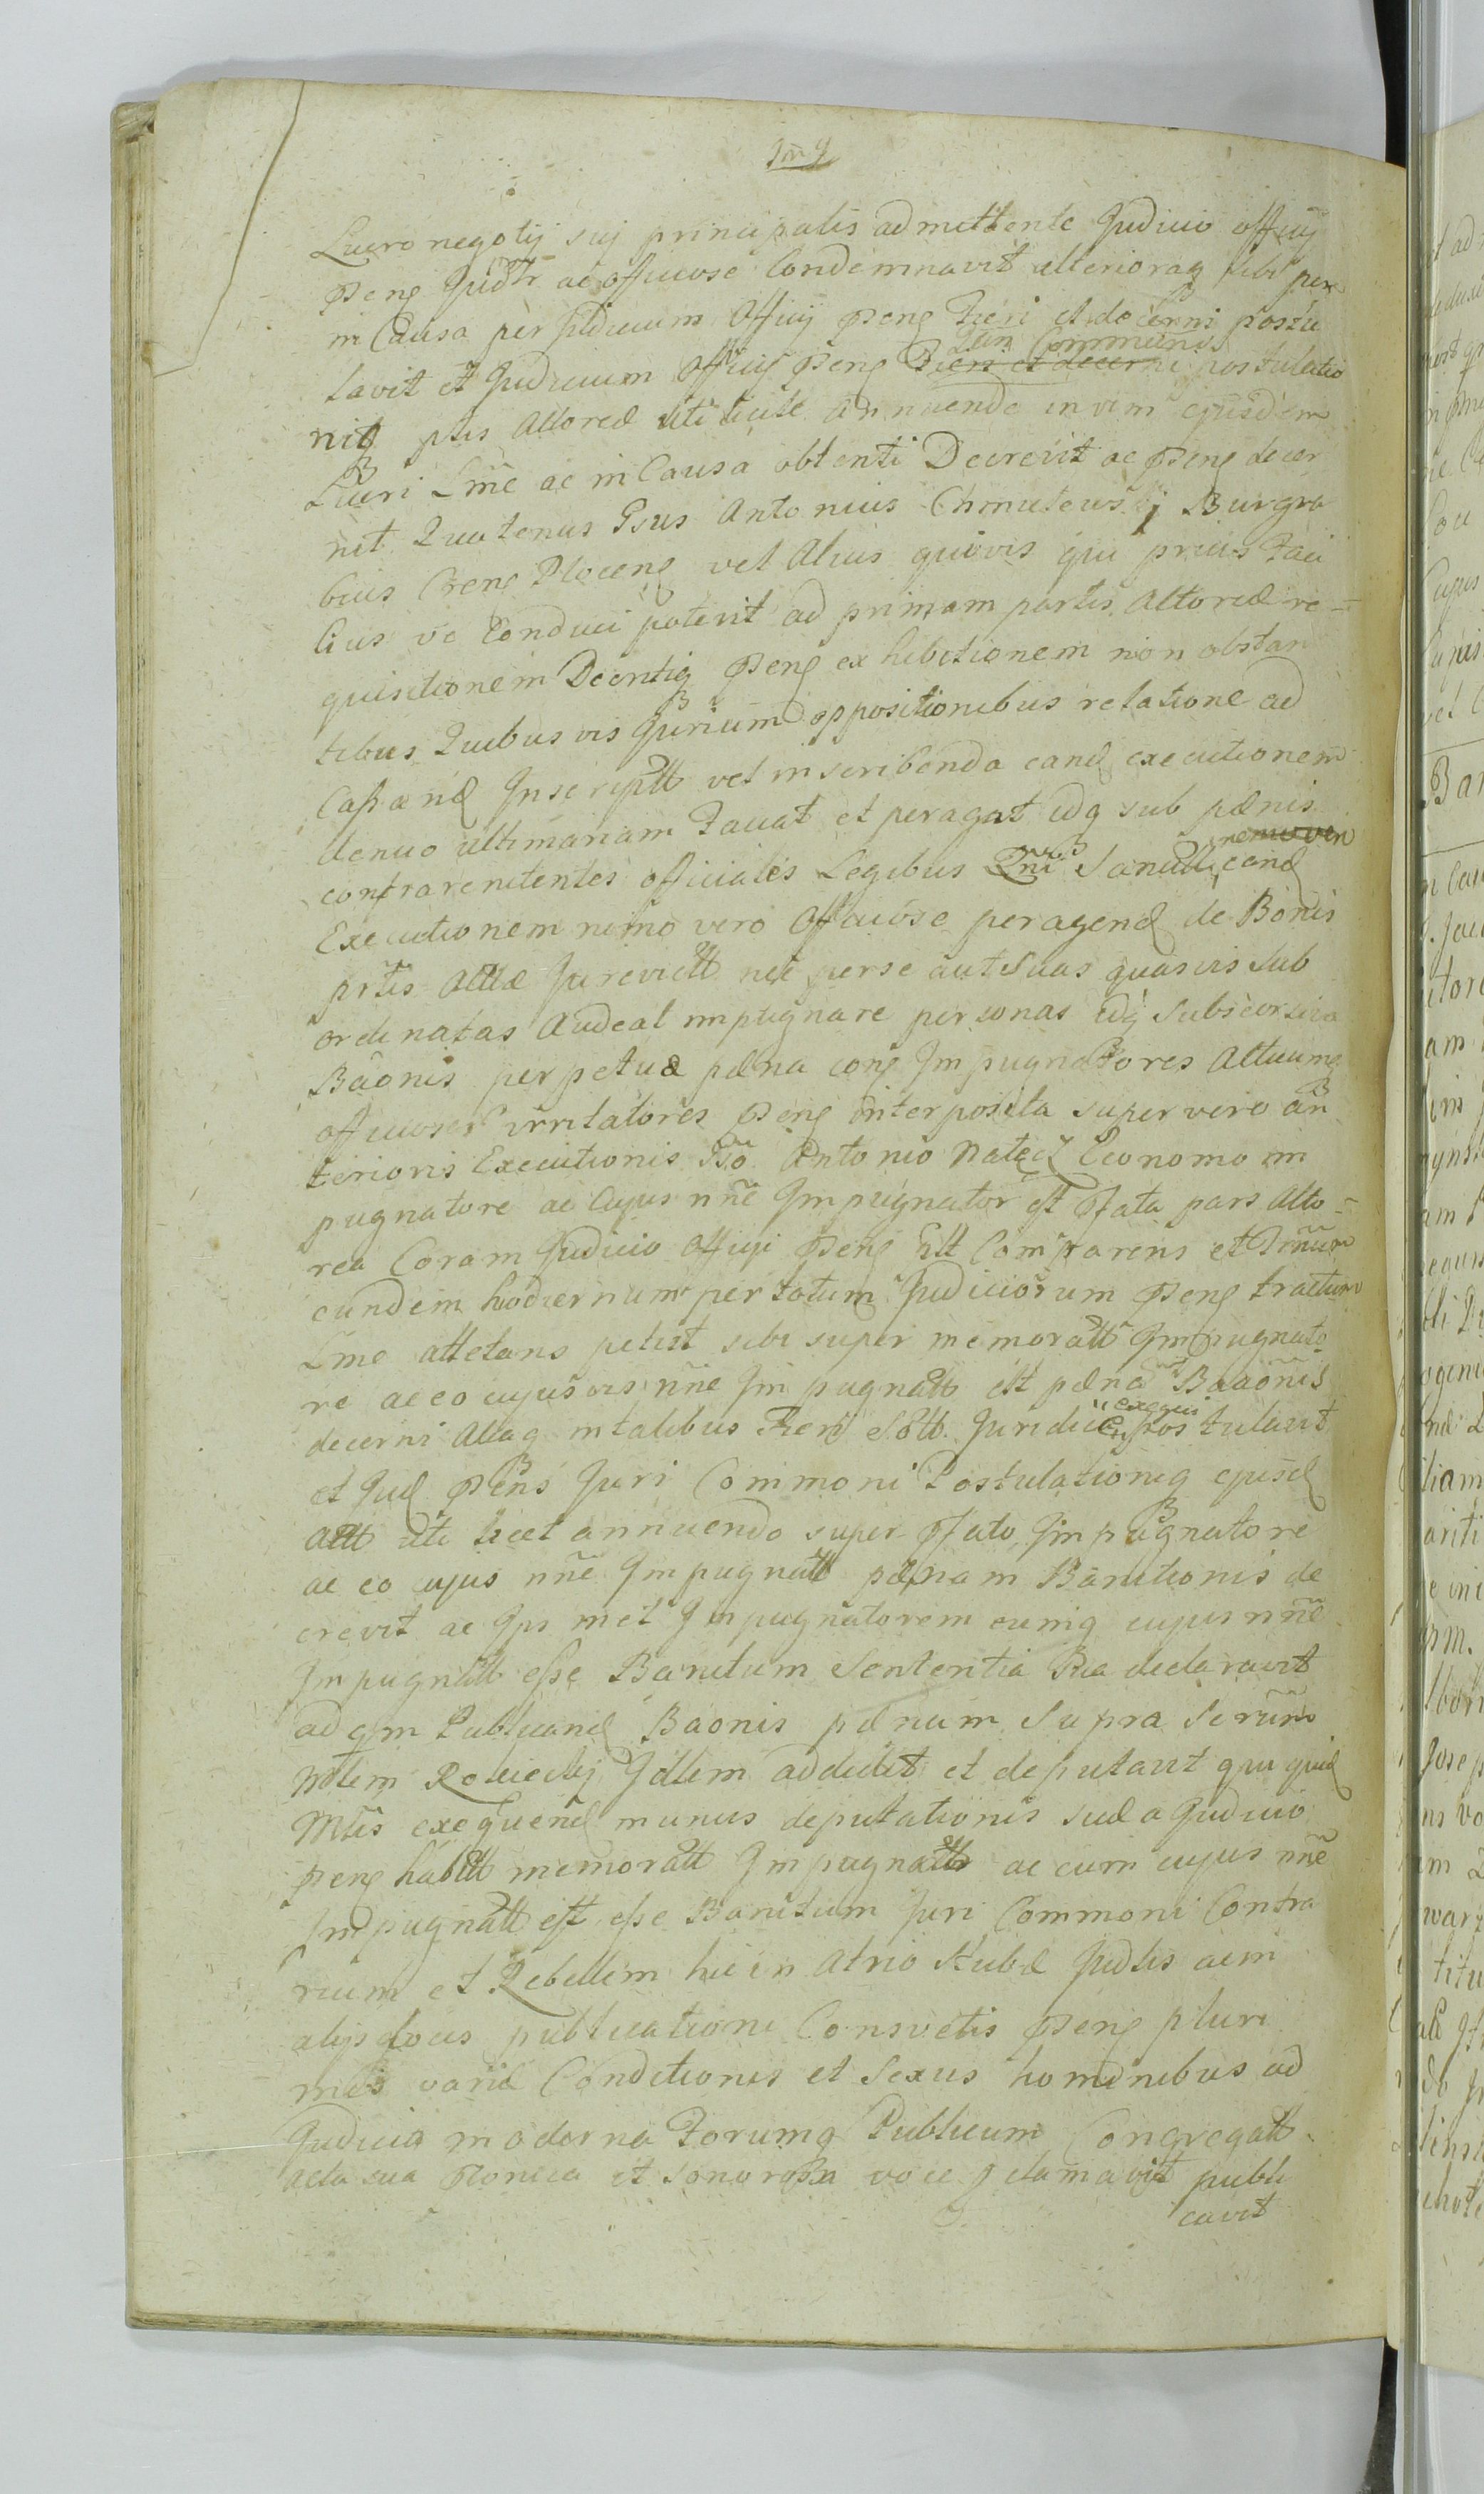 Lucro negotij sui principalis admittente Judicio officij
Pens Judr ac officiose Condemnavit ulterioraq sibi pere
in Causa per Judicium Officij Pens Fieri et decerni postu
lavit et Judicium Officij Pens Juri Communi postulatio
niq ptis Actoreæ uti licite annuendo in vim ejusdem
Lucri Sme ac in Causa obtenti Decrevit ac Pens decer
nit Quatenus Gsus Antonius Chmielewskij Burgra
bius Crens Plocens vel Alius quivis qui prius Faci
lius ve Conduci poterit ad primam partis Actoreæ re-
quisitionem Decretiq Pens exhibitionem non obstan
tibus Quibusvis Jurium oppositionibus relatione ad
Cassand Inscriptt vel inscribenda eand executionem
denuo ultimariam Faciat et peragat idq sub pænis
contrarenitentes officiales Legibus Rni Sancitt, eand
Executionem nemo vero Officiose peragend de Bonis
prtis Acttæ Jurevictt net per se aut Suas quasvis Sub
ordinatas Audeat impugnare personas idq sub
Bãonis perpetuæ pæna cons Impugnatores Actuumq
officioser irritatores Pens interposita super vero an
terioris Executionis Gso Antonio Natecz Economo im
pugnatore ac Cujus nne Impugnator est Pfata pars Acto-
rea Coram Judicio Officij Pens Itt Comparens et Trnum
eundem hodiernum per totum Judiciorum Pens tractum
Sme attetans petiit sibi super memoratt Impugnato
re ac eo cujusvis nñe Impugnatt est pæna Baãonis
decerni Aliaq in talibus Fieri Sôtt Juridice exequi postulavit
et Jud Pens Juri Commoni Postulationiq ejusd
Actt uti licet annuendo super Pfato Impugnatore
ac eo cujus nñe Impugnatt pænam Banitionis de
crevit ac Ips met Impugnatorem eumq cujus nñe
Impugnatt esse Banitum Sententia Sua declaravit
ad qm Publicand Baonis pænam Supra Scrum
Mtem Rokickij Jdlem addidit et deputavit qui quid
Mtis exequend munus deputationis suæ a Judicio
Pens habitt memoratt Impugnatt ac eum cujus nñe
Impugnatt est esse Banitum Juri Commoni Contra
rium et Rebellem hic in Atrio Stubæ Judlis ac in
alijs locis publicationi Consvetis Pens pluri
mis variæ Conditionis et Sexus hominibus ad
Judicia moderna Forumq Publicum Congregatt
alta sua et sonorosa voce pclamavit publi
cavit